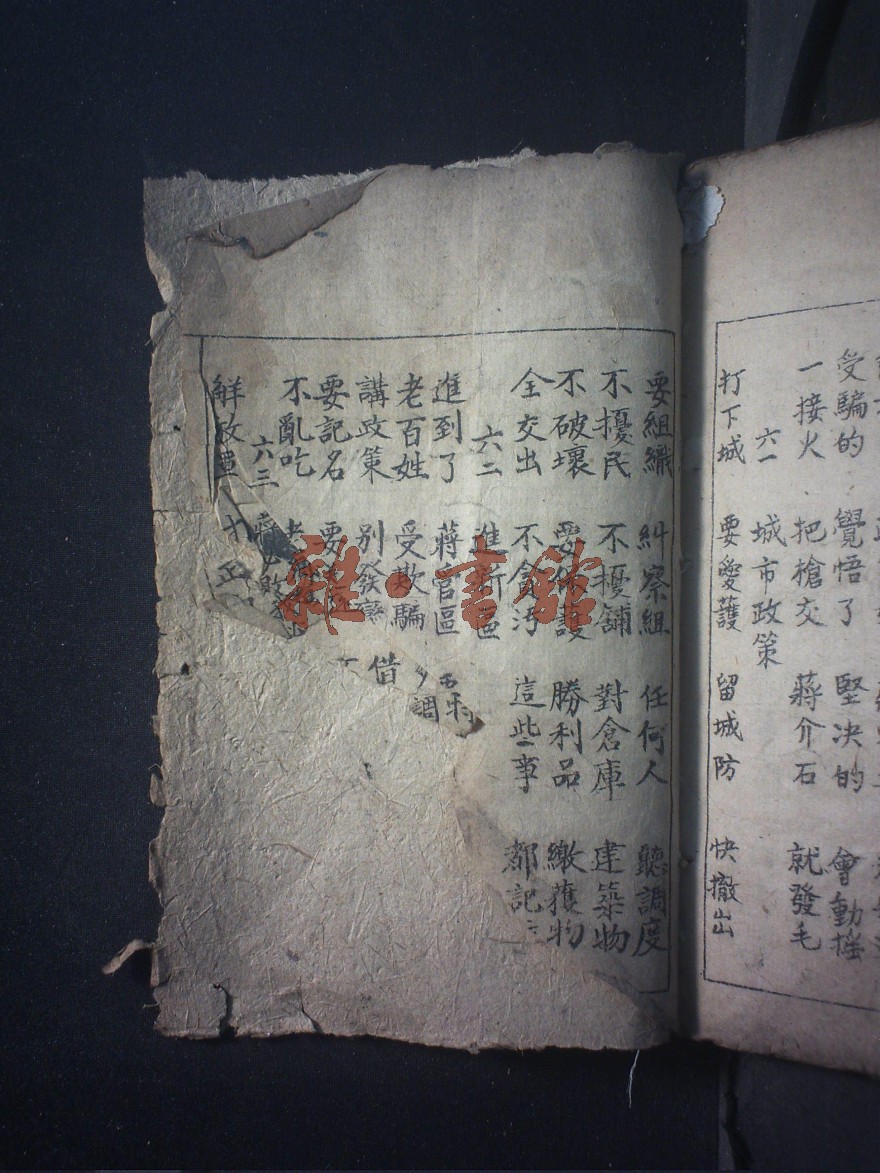 受騙的 覺悟了 堅决的 會動搖
一接火 把槍交 蔣介石 就發毛
六一 城市政策
打下城 要愛護 留城防 快撤出
要組織 糾察組 任何人 聽調度
不擾民 不擾舖 對倉庫 建築物
不破壞 要 護 勝利品 繳獲物
全交出 不貪污 這些事 都記
六二 進新區
進到了 蔣官區
老百姓 受欺騙 調
講政策 別 借
要記名 要
不亂吃
六三 蔣 敗
觧放軍 十 正
雜·書館